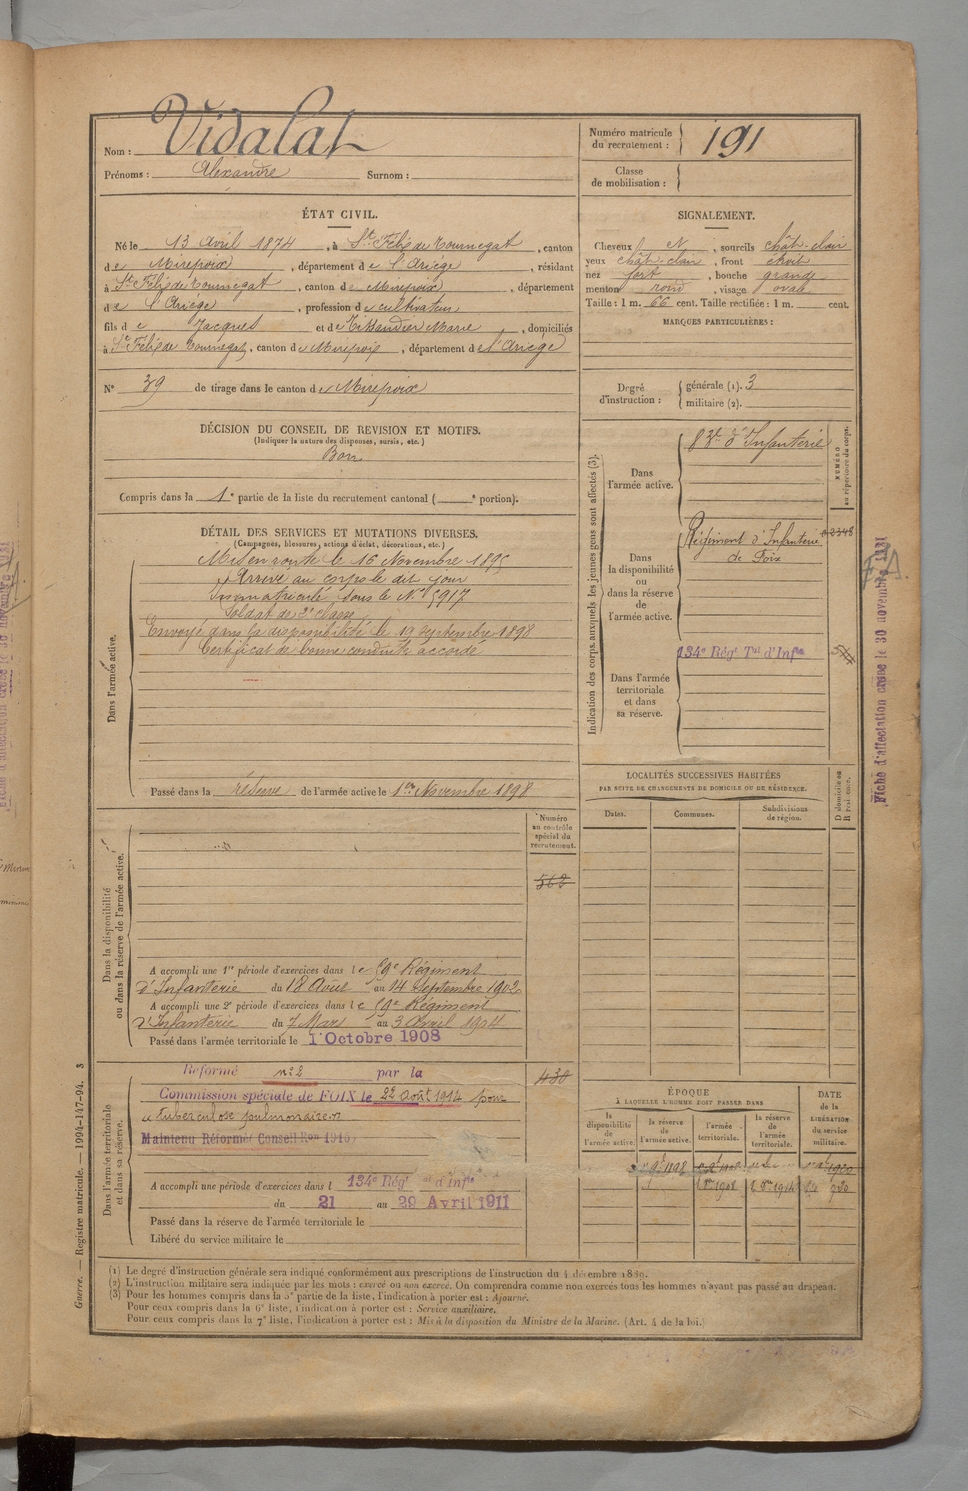 Nom : Vidalat
Prénoms : Alexandre Surnom :
Numéro matricule du recrutement : 191
Classe de mobilisation :
ÉTAT CIVIL.
Né le 13 Avril 1874, à St Félix de Tournegat, canton
de Mirepoix, département de l'Ariège, résidant
à St Félix de Tournegat, canton de Mirepoix, département
de l'Ariège, profession de cultivateur
fils de Jacques et de Marie, domiciliés
à St Félix de Tournegat, canton de Mirepoix, département de l'Ariège
N° 39 de tirage dans le canton de Mirepoix
SIGNALEMENT.
Cheveux N, sourcils chât-clair
yeux chât-clair, front étroit
nez fort, bouche grande
menton rond, visage ovale
Taille : 1 m. 66 cent. Taille rectifiée : 1 m. cent.
MARQUES PARTICULIÈRES :
Degré d'instruction : générale (1). 3
militaire (2).
DÉCISION DU CONSEIL DE REVISION ET MOTIFS.
(Indiquer la nature des dispenses, sursis, etc.)
Bon
Compris dans la 1e partie de la liste du recrutement cantonal ( e portion).
DÉTAIL DES SERVICES ET MUTATIONS DIVERSES.
(Campagnes, blessures, actions d'éclat, décorations, etc.)
Dans l'armée active.
Mis en route le 16 Novembre 1895
Arrivé au corps le dit jour
Immatriculé sous le N° 5917
Soldat de 2e classe
Envoyé dans la disponibilité le 19 Septembre 1898
Certificat de bonne conduite accordé
Passé dans la réserve de l'armée active le 1er Novembre 1898
Indication des corps auxquels les jeunes gens sont affectés (3).
NUMÉRO au répertoire du corps.
Dans l'armée active.
83e d'Infanterie
Dans la disponibilité ou dans la réserve de l'armée active.
Régiment d'Infanterie
de Foix
134e Régt Tal d'Infie
Dans l'armée territoriale et dans sa réserve.
Fiche d'affectation créée le 30 novembre
LOCALITÉS SUCCESSIVES HABITÉES
PAR SUITE DE CHANGEMENTS DE DOMICILE OU DE RÉSIDENCE.
Dates. Communes. Subdivisions de région. D domicile ou R résidence.
Dans la disponibilité ou dans la réserve de l'armée active.
Numéro au contrôle spécial du recrutement.
562
A accompli une 1re période d'exercices dans le 59e Régiment
d'Infanterie du 18 Août au 14 Septembre 1902
A accompli une 2e période d'exercices dans le 59e Régiment
d'Infanterie du 7 Mars au 3 Avril 1904
Passé dans l'armée territoriale le 1 Octobre 1908
Dans l'armée territoriale et dans sa réserve.
430
Réformé n° 2 par la
Commission spéciale de FOIX le 22 Août 1914 pour
tuberculose pulmonaire
Maintenu Réformé Conseil Ron 1916
A accompli une période d'exercices dans l 134e Régt d'Infie
du 21 au 29 Avril 1911
Passé dans la réserve de l'armée territoriale le
Libéré du service militaire le
ÉPOQUE
À LAQUELLE L'HOMME DOIT PASSER DANS
la disponibilité de l'armée active. la réserve de l'armée active. l'armée territoriale. la réserve de l'armée territoriale.
DATE de la LIBÉRATION du service militaire.
(1) Le degré d'instruction générale sera indiqué conformément aux prescriptions de l'instruction du 4 décembre 1889.
(2) L'instruction militaire sera indiquée par les mots : exercé ou non exercé. On comprendra comme non exercés tous les hommes n'ayant pas passé au drapeau.
(3) Pour les hommes compris dans la 5e partie de la liste, l'indication à porter est : Ajourné.
Pour ceux compris dans la 6e liste, l'indication à porter est : Service auxiliaire.
Pour ceux compris dans la 7e liste, l'indication à porter est : Mis à la disposition du Ministre de la Marine. (Art. 4 de la loi.)
Guerre. — Registre matricule. — 1994-147-94. 3